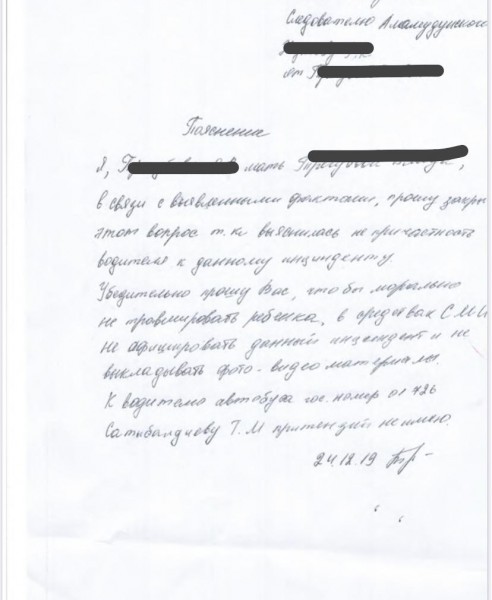 Следователю Аламудунского
от
Пояснение
Я, мать
в связи с выявленными фактами, прошу закры
этот вопрос т.к. выяснилась не причастность
водителя к данному инциденту
Убедительно прошу Вас, чтобы морально
не травмировать ребенка, в средствах СМИ
не афишировать данный инцендент и не
выкладывать фото-видео материалы.
К водителю автобуса гос. номер 01 726
Сатыбалдиеву Т.М притензий не имею.
24.12.19